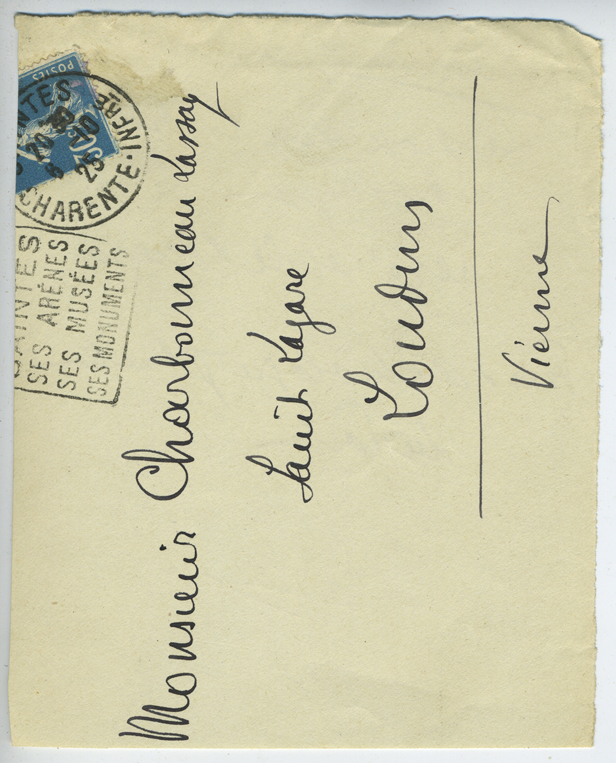 POSTES
SAINTES
CHARENTE-INFRE
SAINTES
SES ARÈNES
SES MUSÉES
SES MONUMENTS
Monsieur Charbonneau Lassay
Saint Lazare
Loudun
Vienne